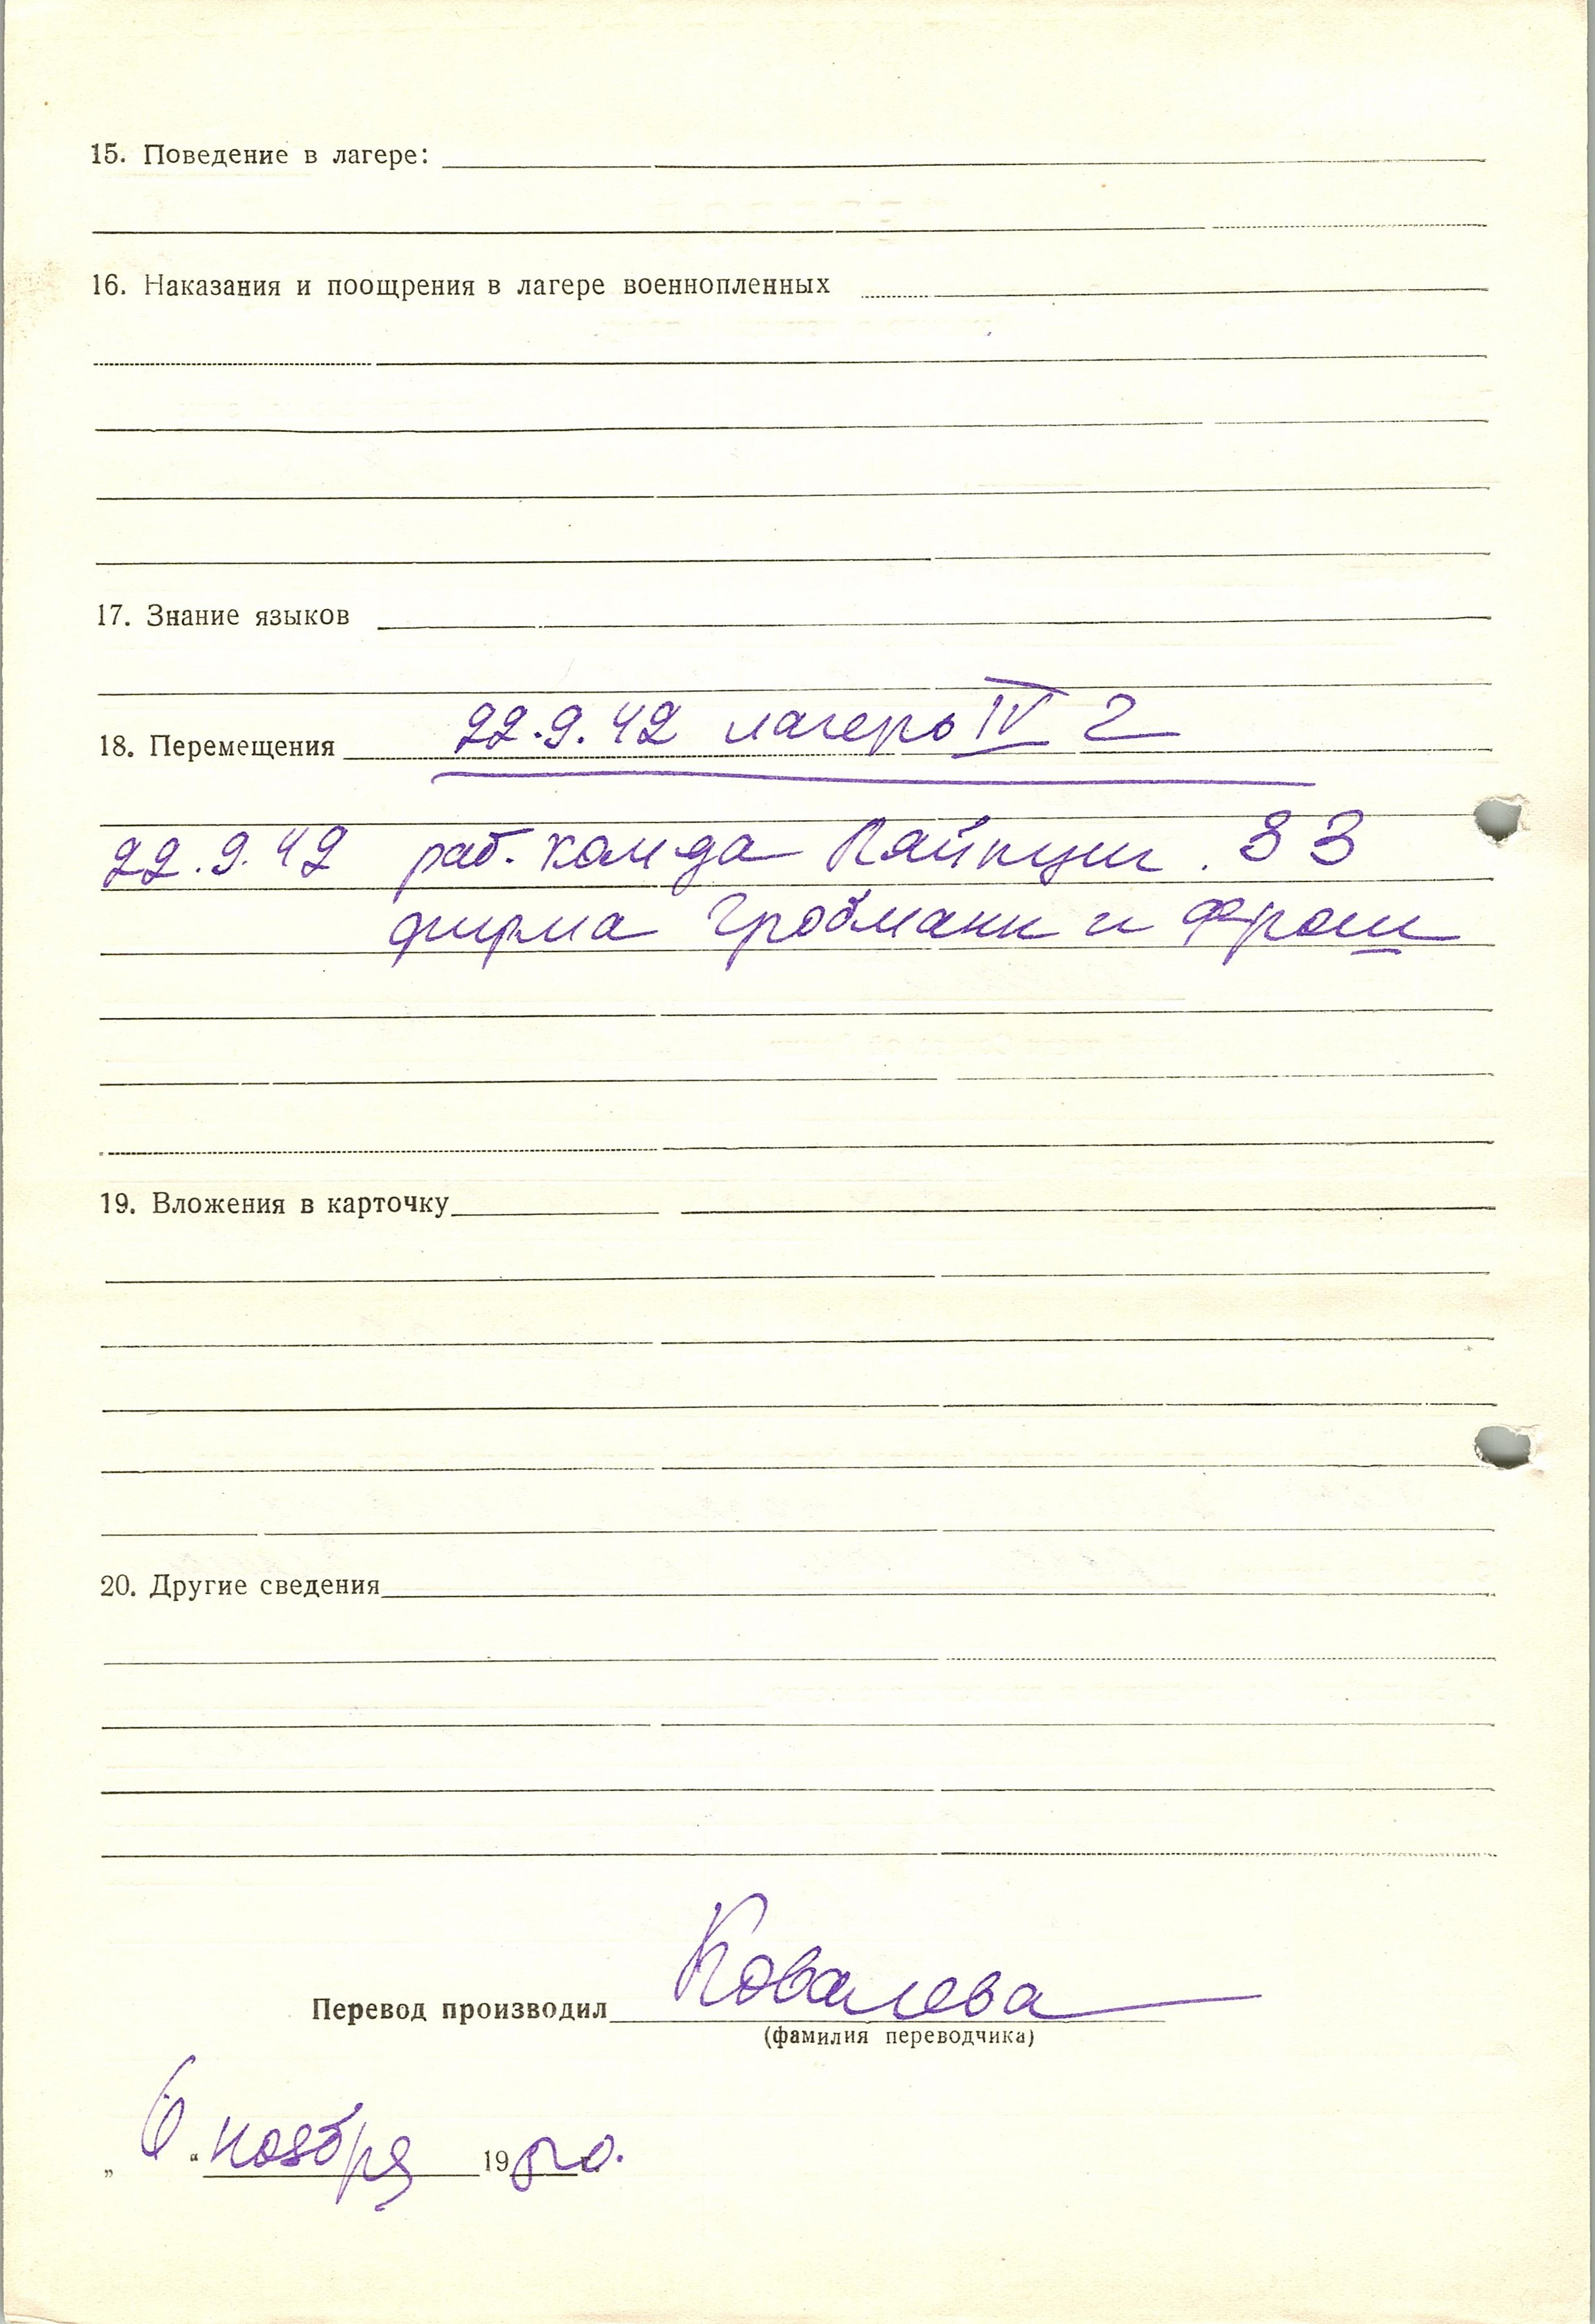 15. Поведение в лагере:
16. Наказания и поощрения в лагере военнопленных
17. Знание языков
18. Перемещения 22.9.42 лагерь IV Г
22.9.42 раб.ком-да Лайпциг. 33
фирма Гробманн и Фрош
19. Вложения в карточку
20. Другие сведения
Перевод производил Ковалева
(фамилия переводчика)
„6“ ноября 195